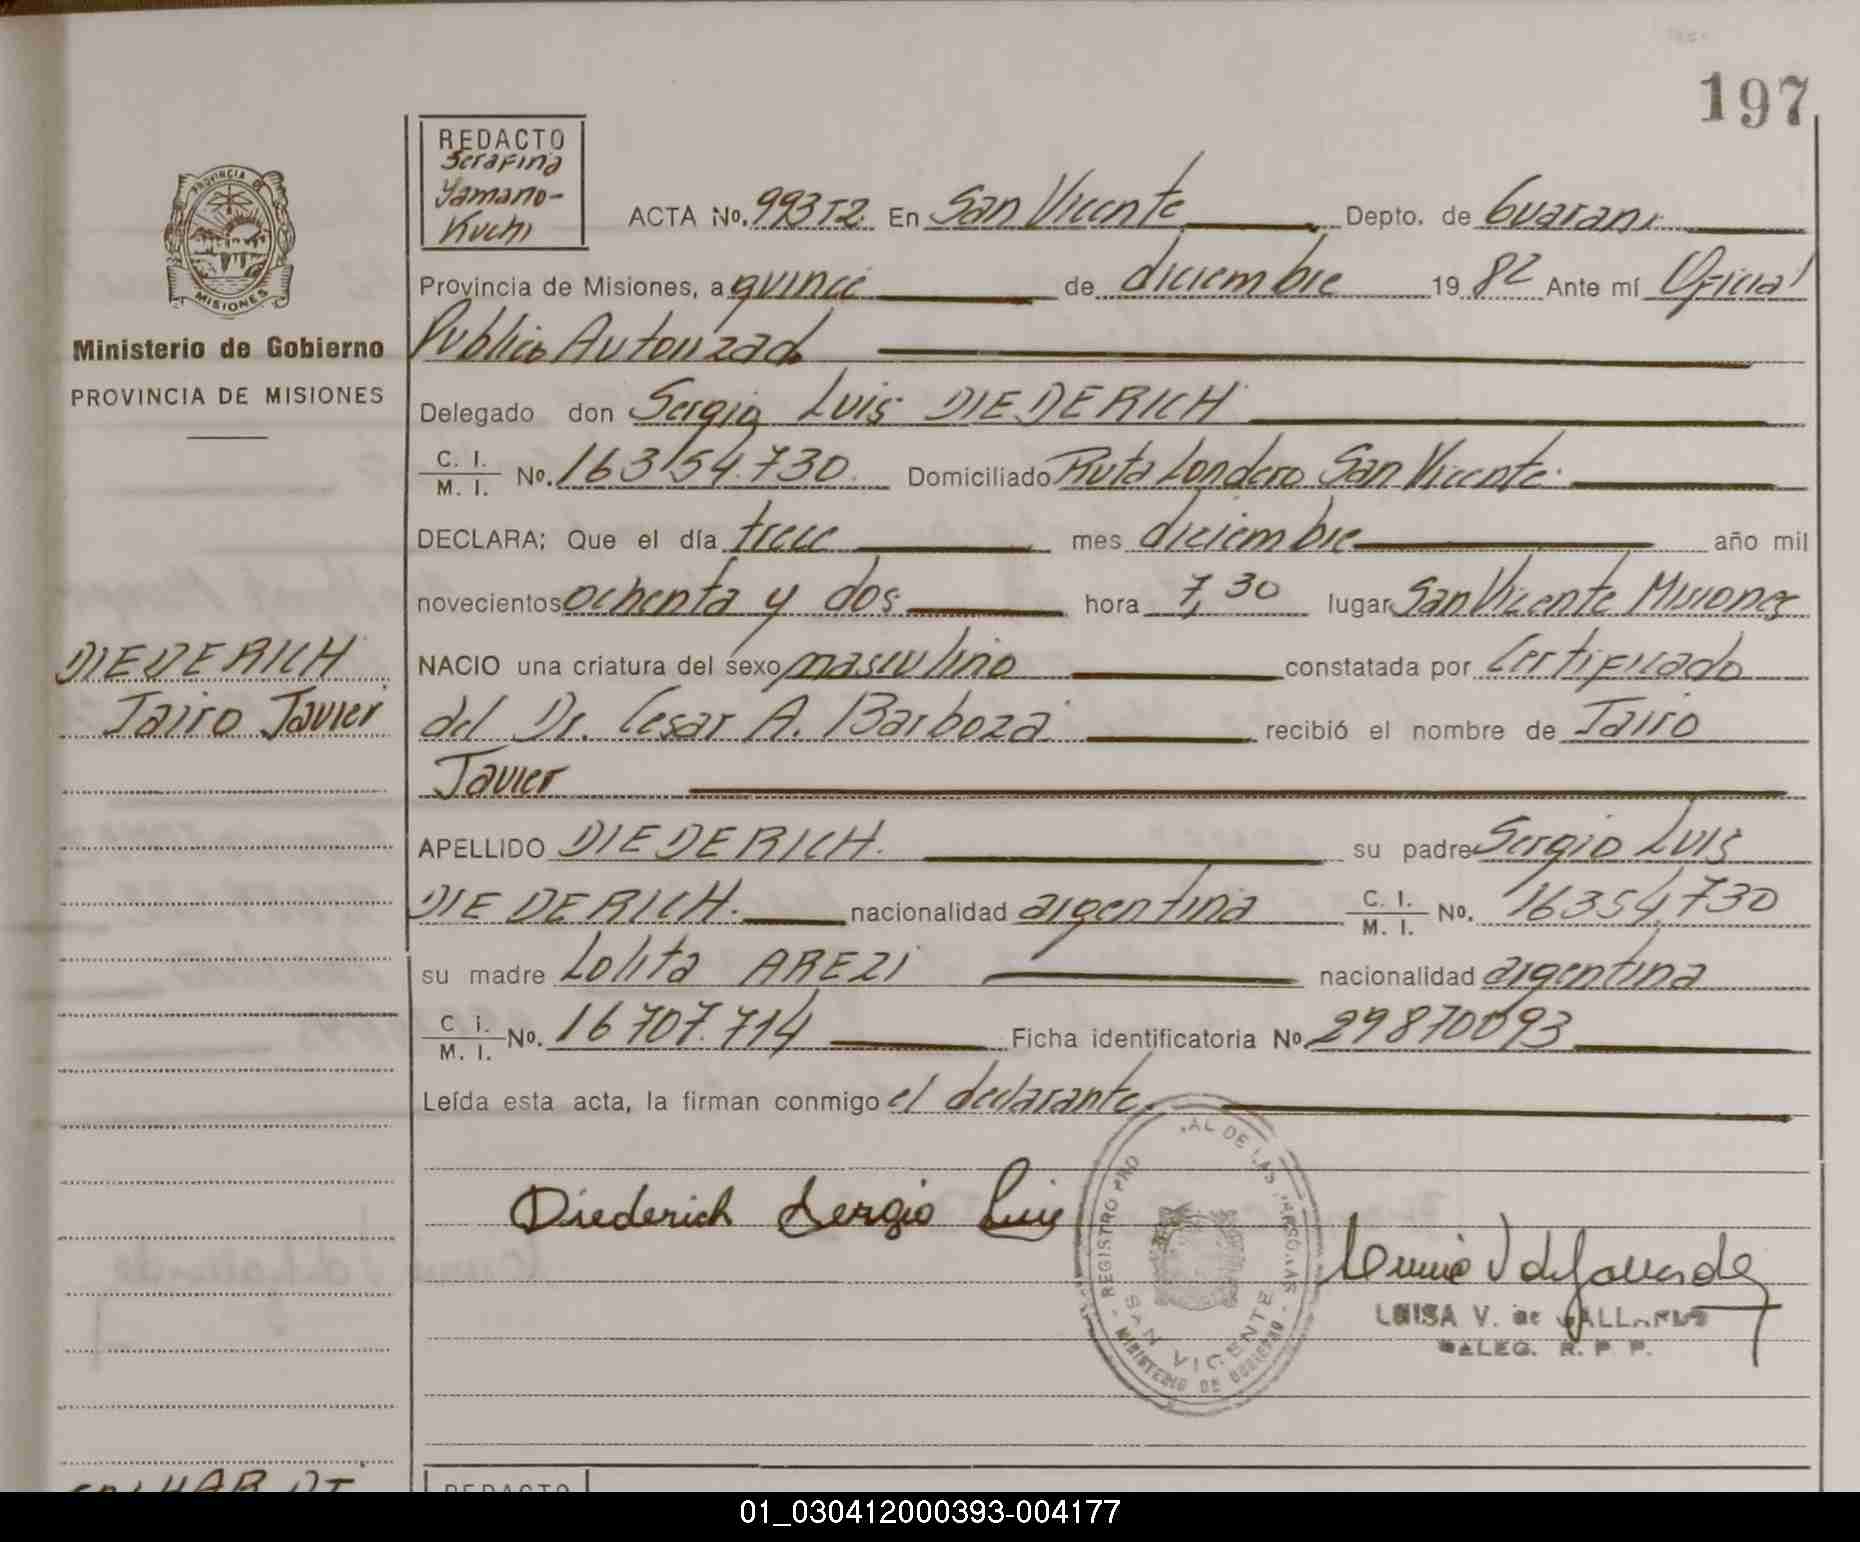 197
REDACTO
Serafina
Yamano-
Kuchi
PROVINCIA DE
MISIONES
Ministerio de Gobierno
PROVINCIA DE MISIONES
ACTA No. 993T2 En San Vicente Depto. de Guarani
Provincia de Misiones, a quince de diciembre 1982 Ante mí Oficial
Publico Autorizado
Delegado don Sergio Luis DIEDERICH
C. I. / M. I. No. 16354.730. Domiciliado Ruta Londero San Vicente.
DECLARA; Que el día trece mes diciembre año mil
novecientos ochenta y dos hora 7,30 lugar San Vicente Misiones
DIEDERICH
Jairo Javier
NACIO una criatura del sexo masculino constatada por Certificado
del Dr. Cesar A. Barboza recibió el nombre de Jairo
Javier
APELLIDO DIEDERICH. su padre Sergio Luis
DIEDERICH. nacionalidad argentina C. I. / M. I. No. 16354.730
su madre Lolita AREZI nacionalidad argentina
C i. / M. I. No. 16707.714 Ficha identificatoria No. 29870093
Leída esta acta, la firman conmigo el declarante.
Diederich Sergio Luis
REGISTRO PRO AL DE LAS PERSONAS
SAN VICENTE
MINISTERIO DE GOBIERNO
LUISA V. de GALLARDO
DALEG. R. P. P.
REDACTO
01_030412000393-004177